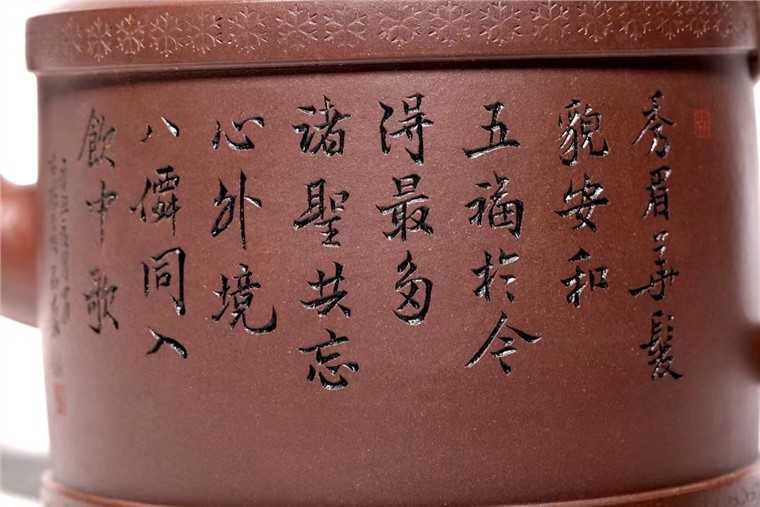 秀眉華髮
貌安和
五福於今
得最多
諸聖共忘
心外境
八僊同入
飲中歌